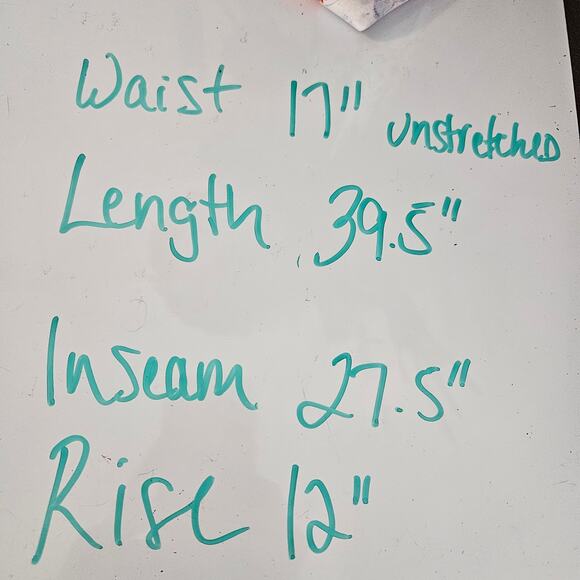 Waist 17" unstretched
Length 39.5"
Inseam 27.5"
Rise 12"